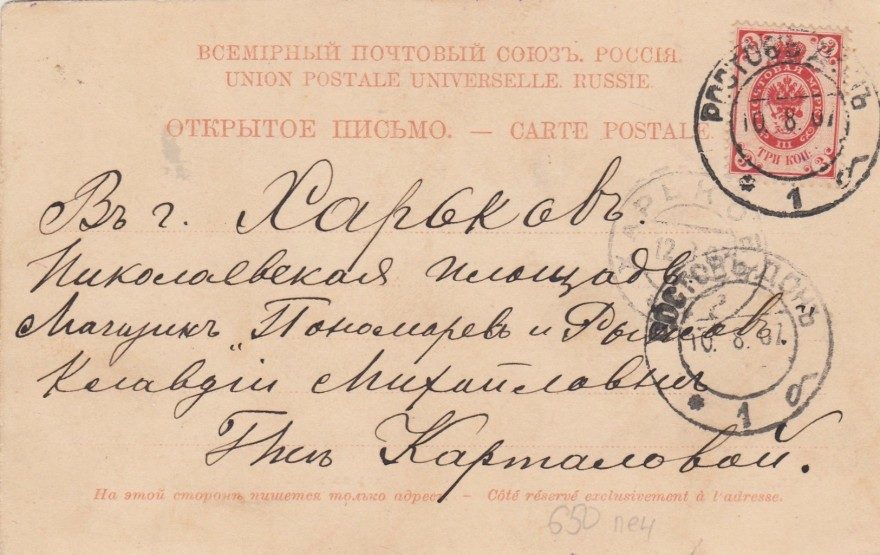 ВСЕМІРНЫЙ ПОЧТОВЫЙ СОЮЗЪ. РОССІЯ.
UNION POSTALE UNIVERSELLE. RUSSIE.
ОТКРЫТОЕ ПИСЬМО. — CARTE POSTALE.
ПОЧТОВАЯ МАРКА
III
ТРИ КОП.
РОСТОВЪ Д. НЪ
10. 8. 07
1 б
Въ г. Харьковъ.
ХАРЬКОВ
12
Николаевская площадь
РОСТОВЪ ДОНЪ
Магазинъ "Пономаревъ и Рыжовъ.
10. 8. 07.
Клавдіи Михайловнѣ
1 б
Гжѣ Карталовой.
На этой сторонѣ пишется только адресъ. — Côté réservé exclusivement à l'adresse.
650 печ